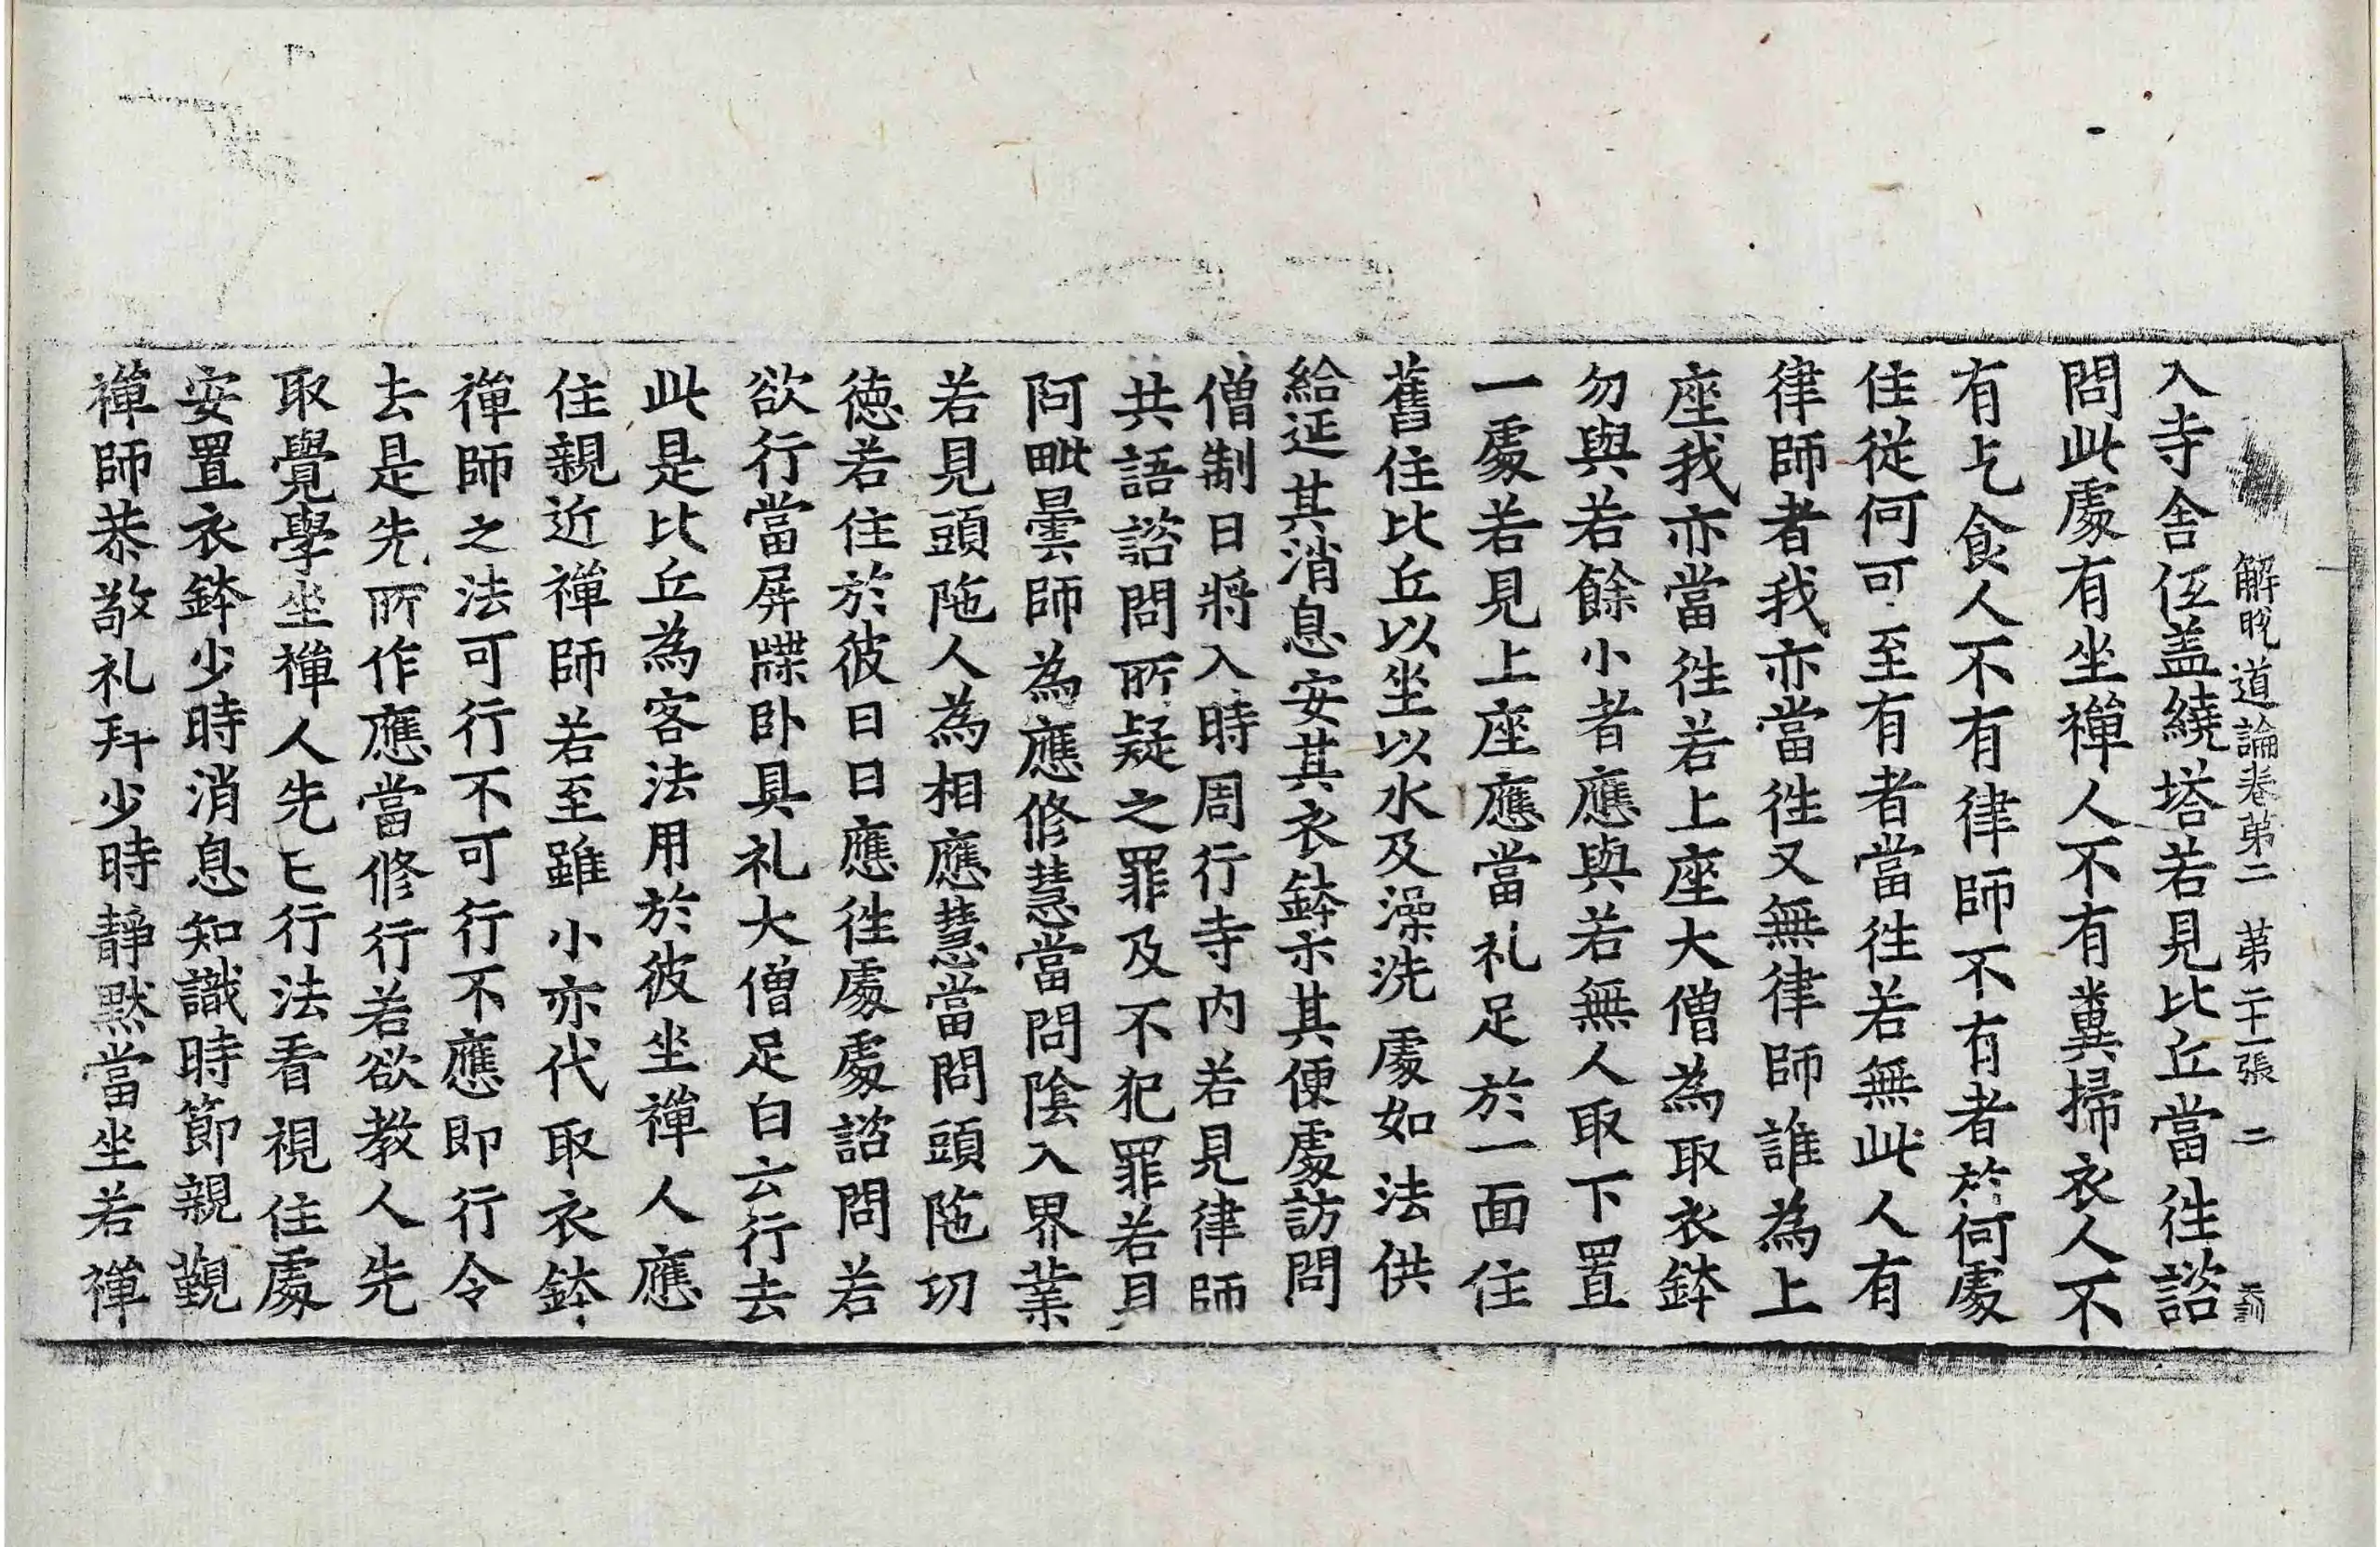 解脫道論卷第二 第二十一張 二
入寺舍伍盖繞塔若見比丘當徃諮
問此處有坐禪人不有糞掃衣人不
有乞食人不有律師不有者於何處
住從何可至有者當徃若無此人有
律師者我亦當徃又無律師誰為上
座我亦當徃若上座大僧為取衣鉢
勿與若餘小者應與若無人取下置
一處若見上座應當礼足於一面住
舊住比丘以坐以水及澡洗處如法供
給延其消息安其衣鉢示其便處訪問
僧制日將入時周行寺内若見律師
共語諮問所疑之罪及不犯罪若見
阿毗曇師為應修慧當問陰入界業
若見頭陁人為相應慧當問頭陁功
徳若住於彼日日應徃處處諮問若
欲行當屏牒卧具礼大僧足白云行去
此是比丘為客法用於彼坐禪人應
住親近禪師若至雖小亦代取衣鉢
禪師之法可行不可行不應即行令
去是先所作應當修行若欲教人先
取覺學坐禪人先已行法看視住處
安置衣鉢少時消息知識時節親覲
禪師恭敬礼拜少時静默當坐若禪